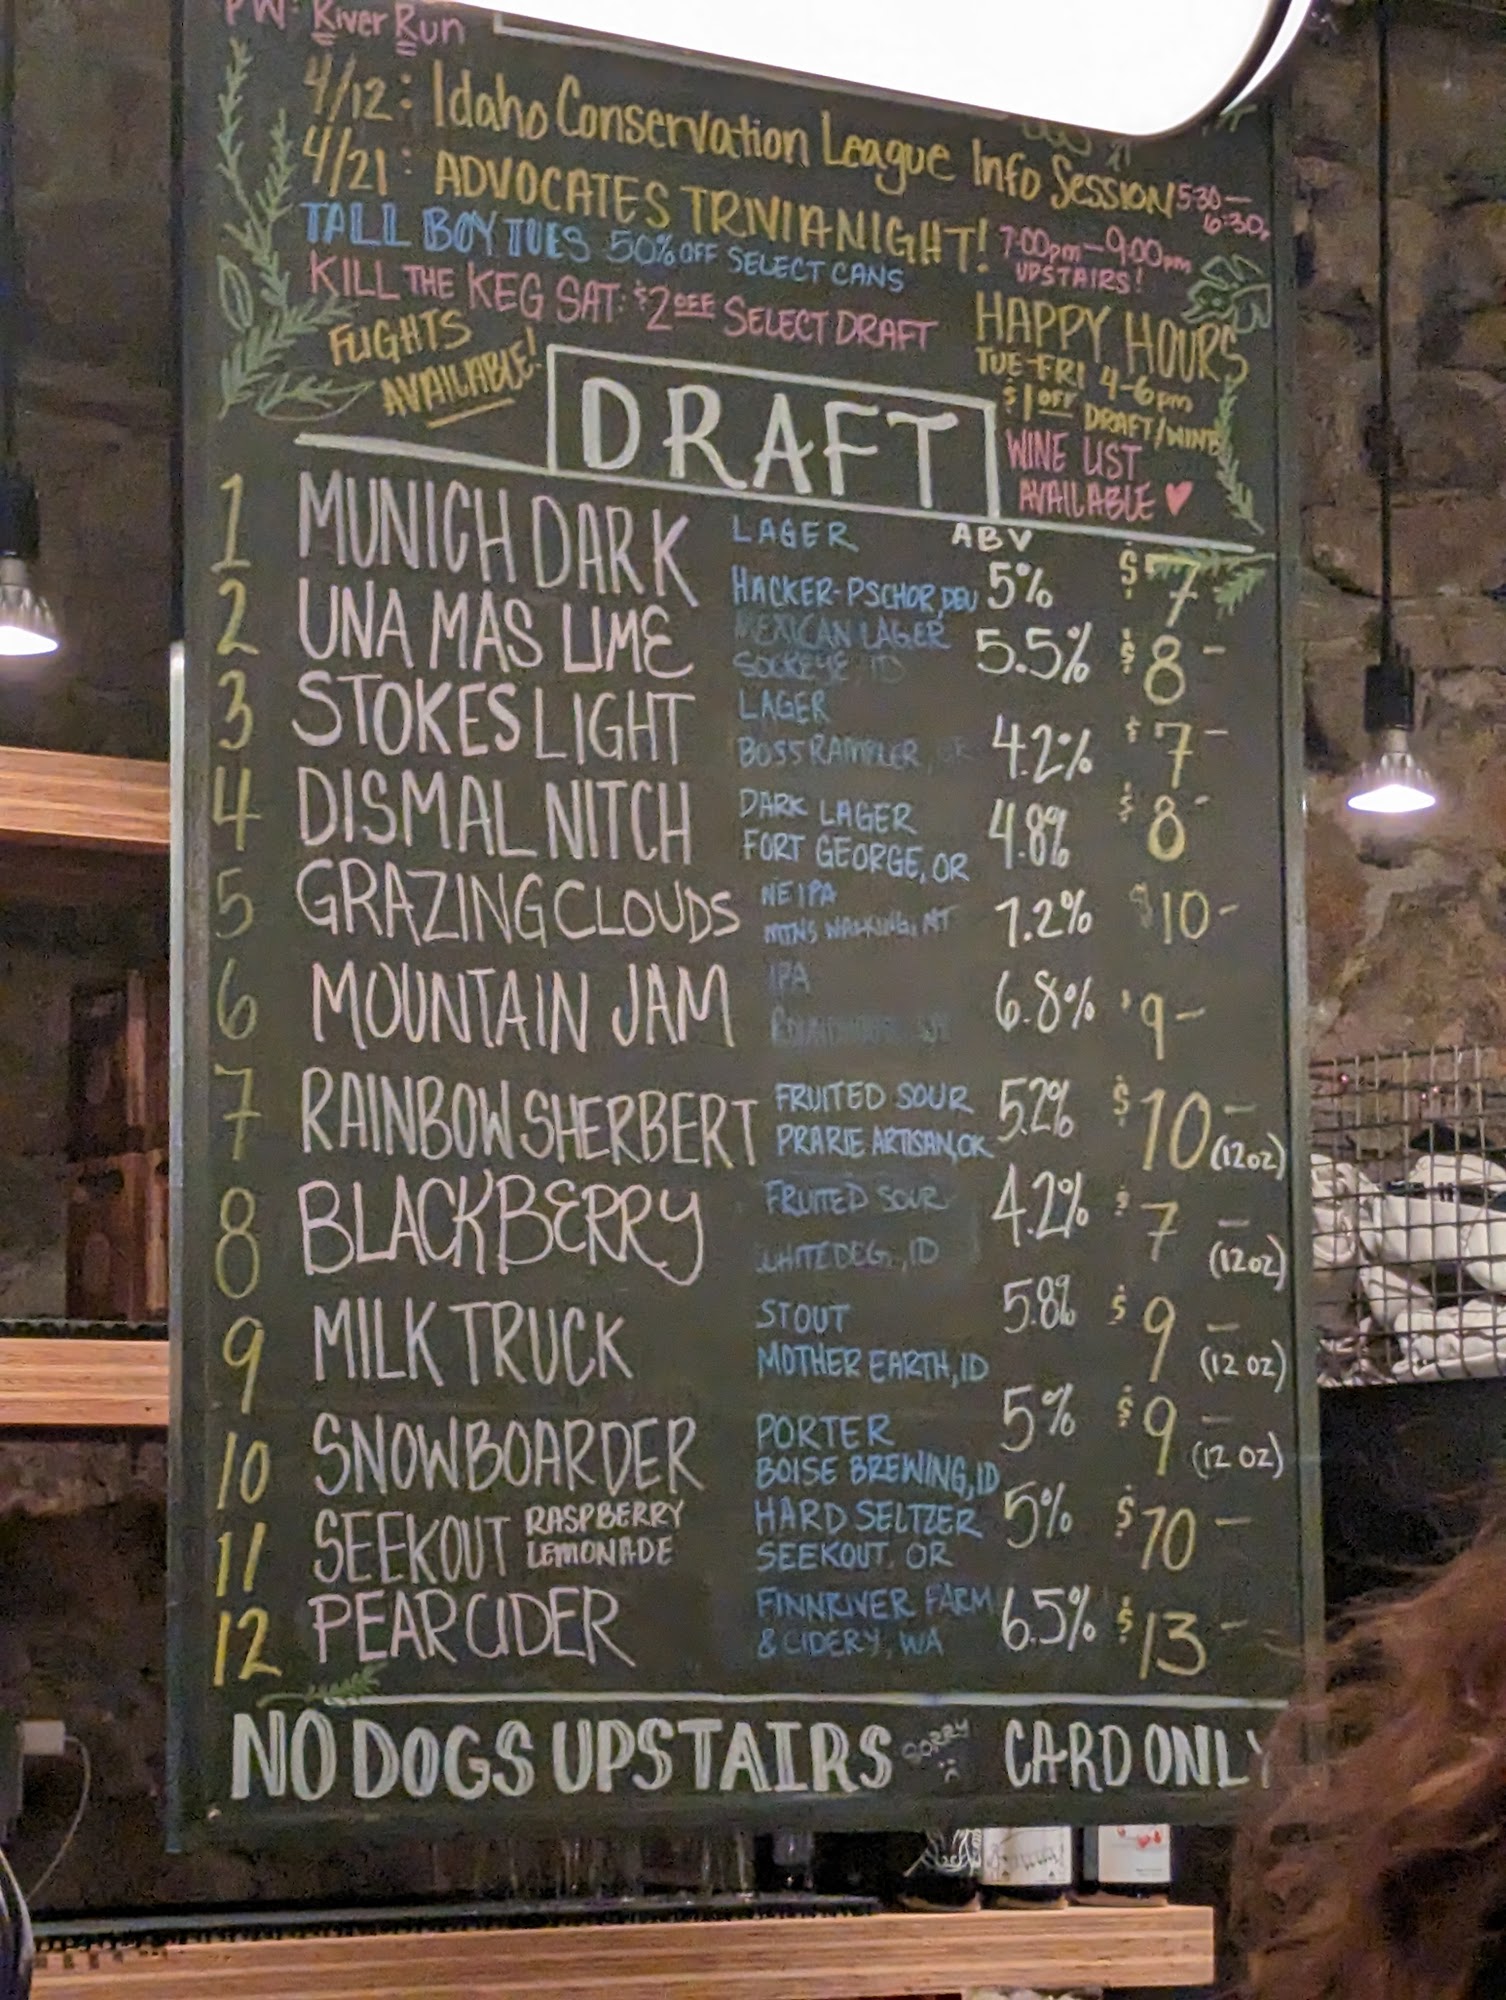 PW: River Run
4/12: Idaho Conservation League Info Session 5:30—
6:30p
4/21: ADVOCATES TRIVIA NIGHT! 7:00pm—9:00pm
UPSTAIRS!
TALL BOY TUES 50% OFF SELECT CANS
KILL THE KEG SAT: $2 OFF SELECT DRAFT
FLIGHTS
AVAILABLE!
HAPPY HOURS
TUE-FRI 4-6pm
$1 OFF DRAFT/WINE
WINE LIST
AVAILABLE ♥
DRAFT
ABV
1 MUNICH DARK LAGER 5% $7
HACKER-PSCHOR, DEU
2 UNA MAS LIME MEXICAN LAGER 5.5% $8-
SOCKEYE, ID
3 STOKES LIGHT LAGER 4.2% $7-
BOSS RAMBLER, OR
4 DISMAL NITCH DARK LAGER 4.8% $8-
FORT GEORGE, OR
5 GRAZING CLOUDS NEIPA 7.2% $10-
MTNS WALKING, MT
6 MOUNTAIN JAM IPA 6.8% $9-
7 RAINBOW SHERBERT FRUITED SOUR 5.2% $10- (12oz)
PRARIE ARTISAN, OK
8 BLACKBERRY FRUITED SOUR 4.2% $7- (12oz)
WHITEDEG., ID
9 MILK TRUCK STOUT 5.8% $9- (12 oz)
MOTHER EARTH, ID
10 SNOWBOARDER PORTER 5% $9- (12 oz)
BOISE BREWING, ID
11 SEEKOUT RASPBERRY LEMONADE HARD SELTZER 5% $10-
SEEKOUT, OR
12 PEAR CIDER FINNRIVER FARM 6.5% $13-
& CIDERY, WA
NO DOGS UPSTAIRS SORRY :( CARD ONLY